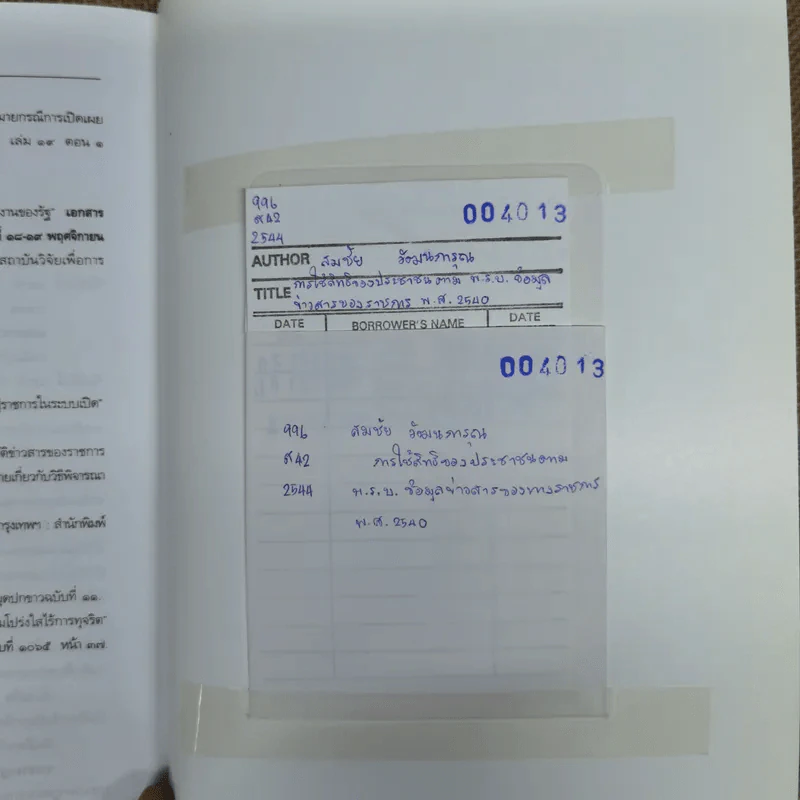 มายกรณีการเปิดเผย
เล่ม ๑๙ ตอน ๑
งานของรัฐ" เอกสาร
ที่ ๑๘-๑๙ พฤศจิกายน
สถาบันวิจัยเพื่อการ
ราชการในระบบเปิด"
ติข่าวสารของราชการ
ายเกี่ยวกับวิธีพิจารณา
กรุงเทพฯ : สำนักพิมพ์
ชุดปกขาวฉบับที่ ๑๑.
มโปร่งใสไร้การทุจริต"
บที่ ๑๐๖๕ หน้า ๓๗
996
ส42
2544
004013
AUTHOR สมชัย วัฒนการุณ
TITLE การใช้สิทธิของประชาชนตาม พ.ร.บ. ข้อมูล
ข่าวสารของราชการ พ.ศ. 2540
DATE BORROWER'S NAME DATE
004013
996 สมชัย วัฒนการุณ
ส42 การใช้สิทธิของประชาชนตาม
2544 พ.ร.บ. ข้อมูลข่าวสารของทางราชการ
พ.ศ. 2540